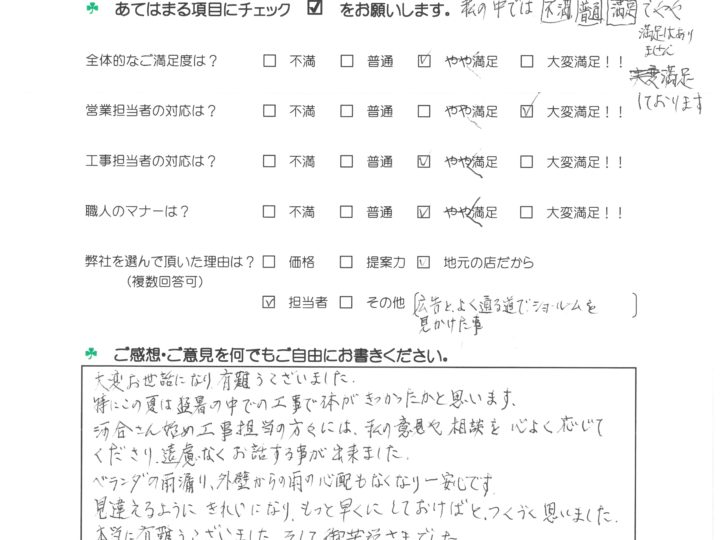 あてはまる項目にチェック ☑ をお願いします。 私の中では 不満 普通 満足 でやや
満足はあり
ません
大変満足
しております
全体的なご満足度は? □ 不満 □ 普通 ☑ やや満足 □ 大変満足!!
営業担当者の対応は? □ 不満 □ 普通 □ やや満足 ☑ 大変満足!!
工事担当者の対応は? □ 不満 □ 普通 ☑ やや満足 □ 大変満足!!
職人のマナーは? □ 不満 □ 普通 ☑ やや満足 □ 大変満足!!
弊社を選んで頂いた理由は? □ 価格 □ 提案力 ☑ 地元の店だから
(複数回答可)
☑ 担当者 □ その他 [広告と、よく通る道でショールームを
見かけた事]
ご感想・ご意見を何でもご自由にお書きください。
大変お世話になり有難うございました。
特にこの夏は猛暑の中での工事で体がきつかったかと思います。
河合さん始め工事担当の方々には、私の意見や相談を心よく応じて
くださり、遠慮なくお話する事が出来ました。
ベランダの雨漏り、外壁からの雨の心配もなくなり一安心です。
見違えるようにきれいになり、もっと早くにしておけばと、つくづく思いました。
本当に有難うございました。そして御苦労さまでした。